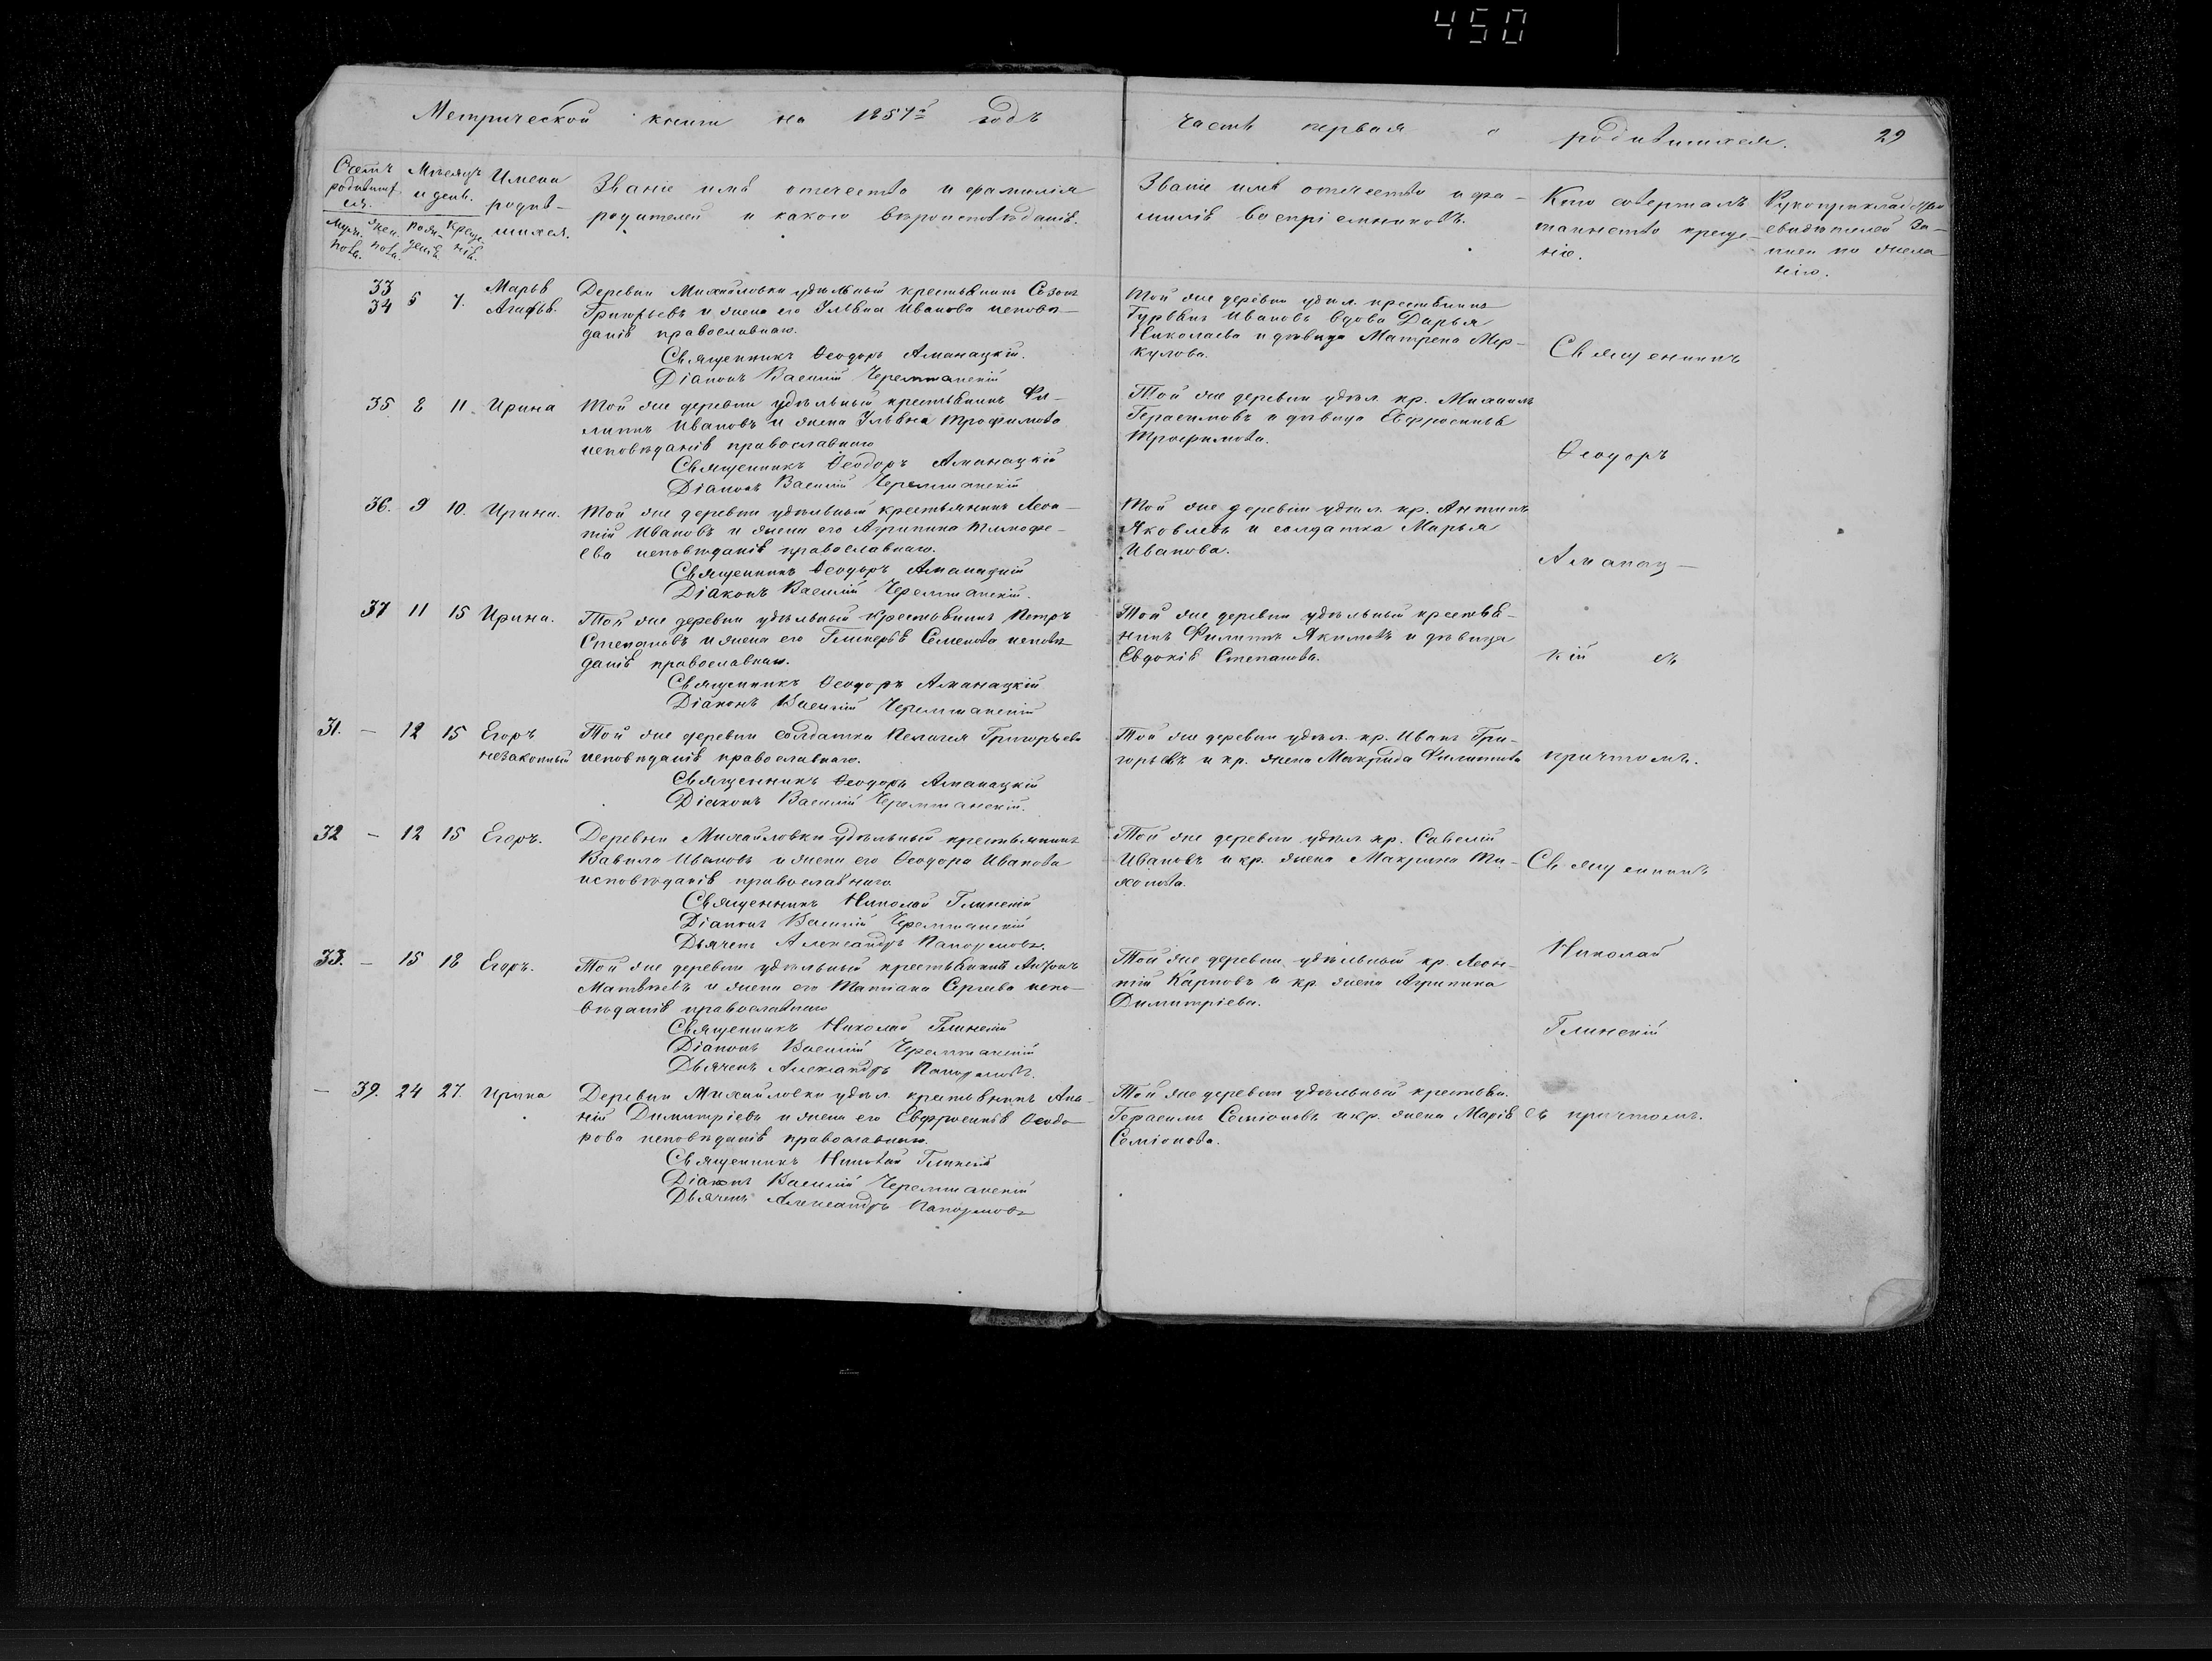 450
Метрической книги на 1857й годъ
Часть первая о родившихся. 29
Счетъ родившихся.
Мужеска пола.
Женска пола.
Мѣсяцъ и день.
рожденія
Крещенія.
Имена родившихся.
Званіе имя отечество и фамилія
родителей и какого вѣроисповѣданія.
Званіе имя отечество и фа-
милія воспріемниковъ.
Кто совершалъ
таинство креще-
нія.
Рукоприкладство
свидѣтелей за-
писи по жела-
нію.
33
34 5 7. Марья
Агафья.
Деревни Михайловки удѣльный крестьянинъ Созонъ
Григорьевъ и жена его Ульяна Иванова исповѣ-
данія православнаго.
Священникъ Ѳеодоръ Аманацкій.
Діаконъ Василій Черемшанскій
Той же деревни удѣл. крестьянинъ
Гурьянъ Ивановъ вдова Дарья
Николаева и дѣвица Матрена Мер-
кулова.
Священникъ
35 8 11. Ирина
Той же деревни удѣльный крестьянинъ Фи-
липпъ Ивановъ и жена Ульяна Трофимова
исповѣданія православнаго
Священникъ Ѳеодоръ Аманацкій
Діаконъ Василій Черемшанскій
Той же деревни удѣл. кр. Михаилъ
Герасимовъ и дѣвица Евфросинья
Трофимова.
Ѳеодоръ
36. 9 10. Ирина.
Той же деревни удѣльный крестьянинъ Леон-
тій Ивановъ и жена его Агрипина Тимофе-
ева исповѣданія православнаго.
Священникъ Ѳеодоръ Аманацкій
Діаконъ Василій Черемшанскій.
Той же деревни удѣл. кр. Антипъ
Яковлевъ и солдатка Марья
Иванова.
Аманац-
37 11 15 Ирина.
Той же деревни удѣльный крестьянинъ Петръ
Степановъ и жена его Гликерья Семенова исповѣ-
данія православнаго.
Священникъ Ѳеодоръ Аманацкій
Діаконъ Василій Черемшанскій
Той же деревни удѣльный крестья-
нинъ Филиппъ Якимовъ и дѣвица
Евдокія Степанова.
кій съ
31. - 12 15 Егоръ
незаконный
Той же деревни солдатка Пелагея Григорьева
исповѣданія православнаго.
Священникъ Ѳеодоръ Аманацкій
Діаконъ Василій Черемшанскій.
Той же деревни удѣл. кр. Иванъ Гри-
горьевъ и кр. жена Макрида Филиппова
причтомъ.
32 - 12 15 Егоръ.
Деревни Михайловки удѣльный крестьянинъ
Вавила Ивановъ и жена его Ѳеодора Иванова
исповѣданія православнаго
Священникъ Николай Глинскій
Діаконъ Василій Черемшанскій
Дьячекъ Александръ Панормовъ.
Той же деревни удѣл. кр. Савелій
Ивановъ и кр. жена Макрина Ти-
хонова.
Священникъ
33. - 15 18 Егоръ.
Той же деревни удѣльный крестьянинъ Антонъ
Матвѣевъ и жена его Татіана Сергѣева испо-
вѣданія православнаго
Священникъ Николай Глинскій
Діаконъ Василій Черемшанскій
Дьячекъ Александръ Панормовъ.
Той же деревни удѣльный кр. Леон-
тій Карповъ и кр. жена Агрипина
Димитріева.
Николай
Глинскій
- 39. 24 27. Ирина
Деревни Михайловки удѣл. крестьянинъ Ана-
ній Димитріевъ и жена его Евфросинья Ѳеодо-
рова исповѣданія православнаго.
Священникъ Николай Глинскій
Діаконъ Василій Черемшанскій
Дьячекъ Александръ Панормовъ
Той же деревни удѣльный крестьян.
Герасимъ Семіоновъ и кр. жена Марія
Семіонова.
съ причтомъ.